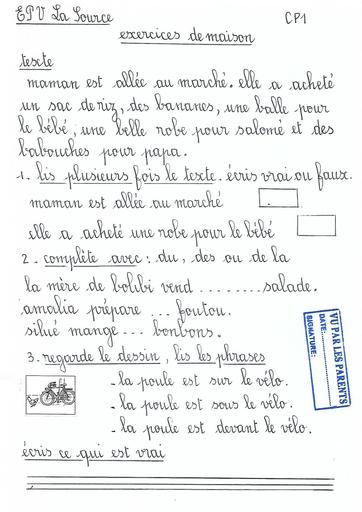 EPV La Source
CP1
exercices de maison
texte
maman est allée au marché. elle a acheté
un sac de riz, des bananes, une balle pour
le bébé, une belle robe pour salomé et des
babouches pour papa.
1. lis plusieurs fois le texte. écris vrai ou faux.
maman est allée au marché
elle a acheté une robe pour le bébé
2 - complète avec : du, des ou de la
la mère de bolibi vend ........ salade.
amalia prépare ... foutou.
silué mange ... bonbons.
3. regarde le dessin, lis les phrases
- la poule est sur le vélo.
- la poule est sous le vélo.
- la poule est devant le vélo.
VU PAR LES PARENTS
DATE:
SIGNATURE:
écris ce qui est vrai